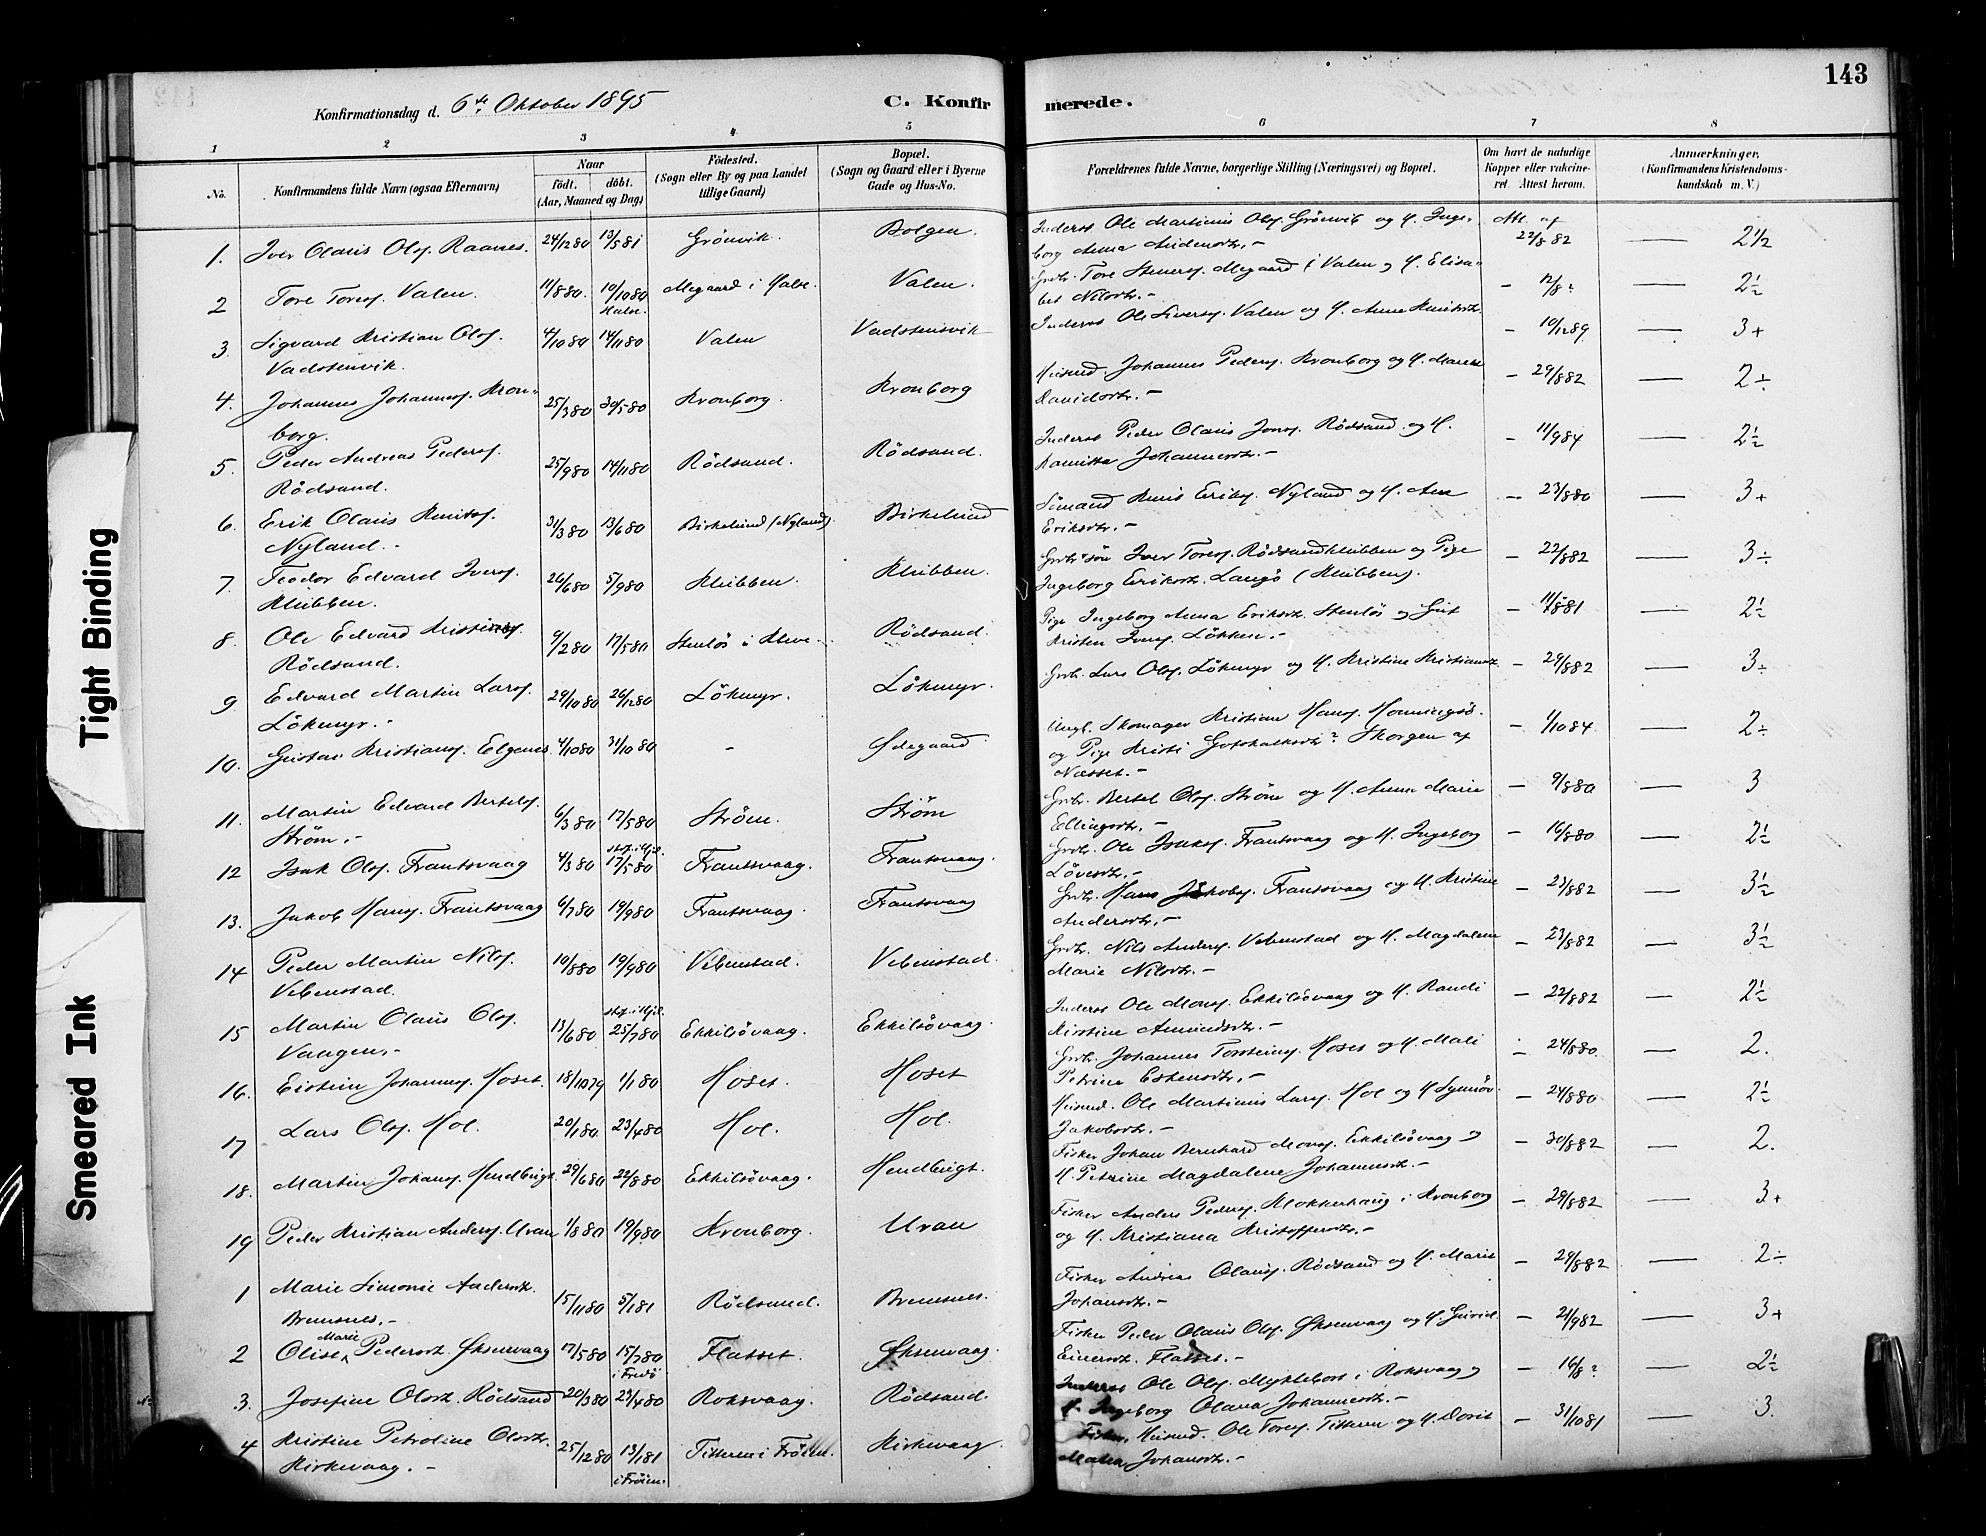 143
Konfirmationsdag d. 6te Oktober 1895
C. Konfir merede.
1 2 3 4 5 6 7 8
No.
Konfirmandens fulde Navn (ogsaa Efternavn)
Naar
født. døbt.
(Aar, Maaned og Dag)
Fødested.
(Sogn eller By og paa Landet
tillige Gaard)
Bopæl.
(Sogn og Gaard eller i Byerne
Gade og Hus-No.
Forældrenes fulde Navne, borgerlige Stilling (Næringsvei) og Bopæl.
Om havt de naturlige
Kopper eller vakcine-
ret. Attest herom.
Anmærkninger.
(Konfirmandens Kristendoms-
kundskab m. V.)
1. Iver Olaus Ols. Raanes. 24/12 80 13/5 81 Grönvik. Bolgen. Inderst Ole Martinus Ols. Grönvik og H. Inge- Att. af 22/8 82 — 2½
borg Anna Andersdtr. –
2 Tore Tores. Valen. 11/8 80. 10/10 80 Halse. Megaard i Halse. Valen. Grdbr. Tore Steners. Megaard i Valen og H. Elisa- – 12/8? — 2½
bet Nilsdtr. –
3. Sigvard Kristian Ols. 4/10 80 14/11 80 Valen Vadstensvik Inderst Ole Sivers. Valen og H. Anne Knutsdtr. – 10/12 89 — 3+
Vadstensvik.
4. Johannes Johannes. Kron- 25/3 80 30/5 80 Kronborg. Kronborg Husmd. Johannes Peders. Kronborg og H. Marens – 29/8 82 — 2÷
borg. Davidsdtr. –
5. Peder Andreas Peders. 25/9 80 14/11 80 Rödsand. Rödsand. Inderst Peder Olaus Jons. Rödsand og H. – 11/9 84 — 2½
Rödsand. Johannesdtr. –
6. Erik Olaus Knuts. 31/3 80 13/6 80 Birkelund (Nyland). Birkelund Sömand Knut Eriks. Nyland og H. Ane – 23/8 80 — 3+
Nyland. – Eriksdtr. –
7. Teodor Edvard Ivers. 26/6 80 5/9 80 Klubben. Klubben. Grdbr. sön Iver Tores. Rödsandklubben og Pige – 22/8 82 — 3÷
Klubben. Ingeborg Eriksdtr. Langö (Klubben).
8. Ole Edvard Kristens. 9/2 80 17/5 80 Stenlös i Kleve. Rödsand. Pige Ingeborg Anna Eriksdtr. Stenlös og Gut – 11/8 81 — 2½
Rödsand. Kristen Ivers. Lökken. –
9 Edvard Martin Lars. 29/10 80 26/12 80 Lökmyr. Lökmyr. Grdbr. Lars Ols. Lökmyr og H. Kristine Kristiansdtr. – 29/8 82 — 3÷
Lökmyr. –
10. Gustav Kristians. Elgenes 4/10 80 31/10 80 – Ødegaard Ungk. Skomager Kristian Hans. Honningsö. – 1/10 84 — 2÷
og Pige Kristi Gotskalksdtr? Skorgen af
Næsset. –
11. Martin Edvard Bertels. 6/3 80 17/5 80 Ström. Ström Grdbr. Bertel Ols. Ström og H. Anne Marie – 9/8 80 — 3
Ström. – Ellingsdtr. –
12 Isak Ols. Frantsvaag 4/3 80 17/5 80 Frantsvaag. Frantsvaag. Grdbr. Ole Isaks. Frantsvaag og H. Ingeborg – 16/8 80 — 2½
Lövesdtr. –
13. Jakob Hans. Frantsvaag 6/7 80 19/9 80 Frantsvaag. Frantsvaag Grdbr. Hans Jakobs. Frantsvaag og H. Kristine – 23/8 82 — 3½
Andersdtr. –
14 Peder Martin Nils. 10/8 80 19/9 80 Vebenstad. Vebenstad. Grdbr. Nils Anders. Vebenstad og H. Magdalene – 23/8 82 — 3½
Vebenstad. Marie Nilsdtr. –
15 Martin Olaus Ols. 13/6 80 25/7 80 Ekkilsövaag. Ekkilsövaag. Inderst Ole Mons. Ekkilsövaag og H. Randi – 22/8 82 — 2½
Vaagen. – Kirstine Amundsdtr. –
16. Eistein Johannes. Hoset. 18/10 79 1/1 80 Hoset. Hoset Grdbr. Johannes Torsteins. Hoset og H. Mali – 24/8 80. — 2.
Petrine Estensdtr. –
17 Lars Ols. Hol. 20/1 80. 23/4 80 Hol. Hol. Husmd. Ole Martinus Lars. Hol og H. Synnöv – 24/8 80 — 2½
Jakobsdtr. –
18. Martin Johans. Hendbrigt. 29/6 80 22/8 80 Ekkilsövaag. Hendbrigt. Fisker Johan Bernhard Mons. Ekkilsövaag og – 30/8 82 — 2.
H. Petrine Magdalene Johannesdtr. –
19 Peder Kristian Anders. Uran 1/8 80 19/9 80 Kronborg. Uran Fisker Anders Peders. Klokkerhaug i Kronborg – 29/8 82 — 3+
og H. Kristiana Kristoffersdtr. –
1 Marie Simonie Andersdtr. 15/11 80 5/1 81 Rödsand. Bremsnes. Fisker Andreas Olaus. Rödsand og H. Marit – 29/8 82 — 2÷
Bremsnes. – Johansdtr. –
2 Olise Marie Pedersdtr. Øksenvaag 17/5 80 15/7 80 i Fredö Flatset. Øksenvaag. Fisker Peder Olaus Ols. Øksenvaag og H. Gurid – 21/9 82 — 3+
Einersdtr. Flatset. –
3. Josefine Olsdtr. Rödsand 20/3 80 27/4 80 Roksvaag. Rödsand. Inderst Ole Ols. Myklebost i Roksvaag og – 16/8? — 2½
H. Ingeborg Olana Johannesdtr. –
4 Kristine Petroline Olsdtr. 25/12 80 13/1 81 i Fröien. Titteren i Fröien. Kirkevaag. Fisker, Husmd. Ole Tores. Titteren og H. Dorit – 31/10 81 — 3.
Kirkevaag. – Malia Johansdtr. –
Tight Binding
Smeared Ink